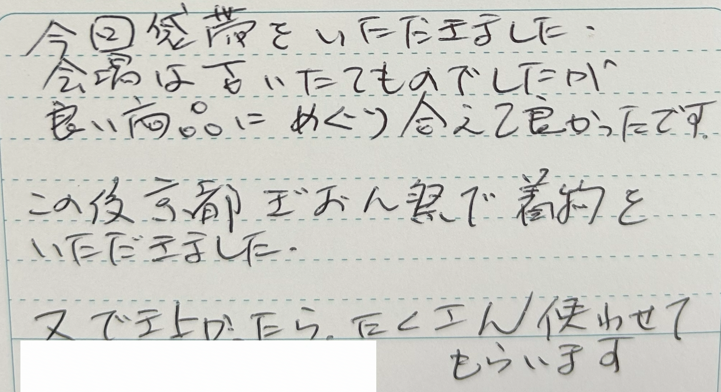 今回袋帯をいただきました.
会場は古いたてものでしたが
良い商品にめぐり合えて良かったです.
この後京都ぎおん祭で着物を
いただきました.
又でき上がったら、たくさん使わせて
もらいます